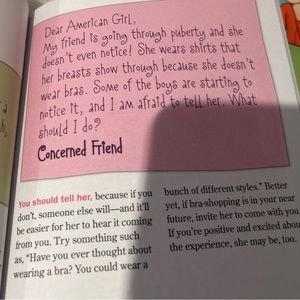 Dear American Girl,
My friend is going through puberty and she
doesn't even notice! She wears shirts that
her breasts show through because she doesn't
wear bras. Some of the boys are starting to
notice it, and I am afraid to tell her. What
should I do?
Concerned Friend
You should tell her, because if you
don't, someone else will—and it'll
be easier for her to hear it coming
from you. Try something such
as, "Have you ever thought about
wearing a bra? You could wear a
bunch of different styles." Better
yet, if bra-shopping is in your near
future, invite her to come with you.
If you're positive and excited about
the experience, she may be, too.